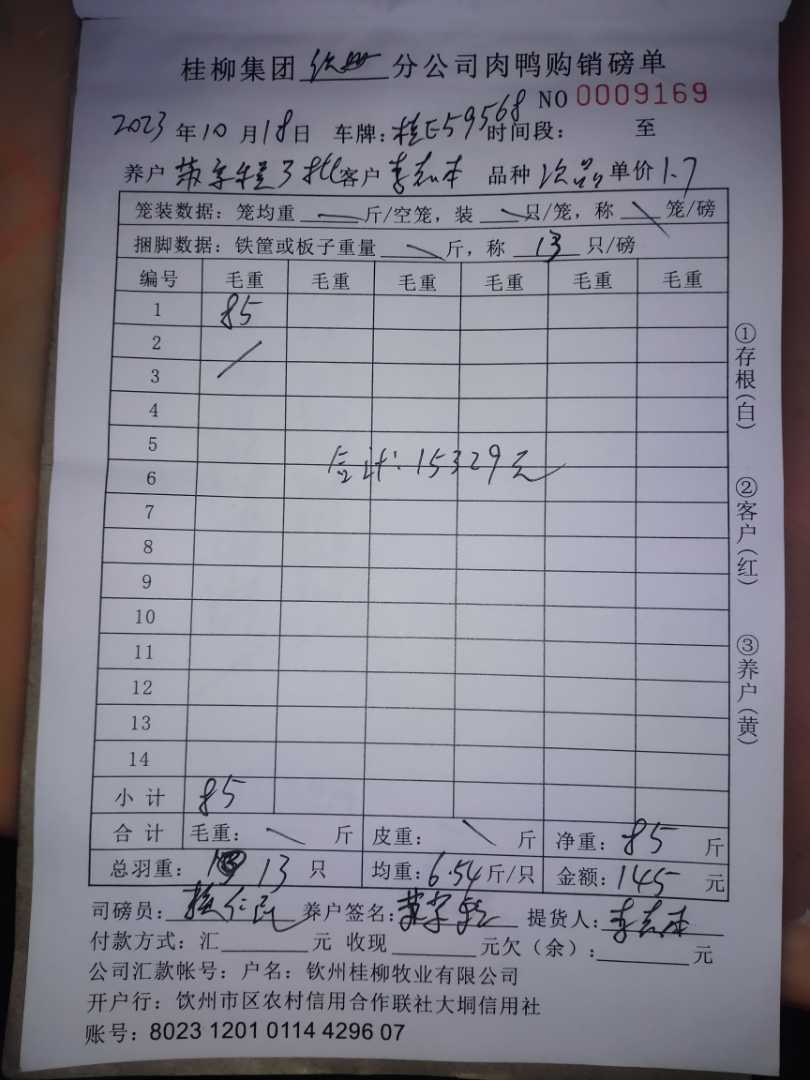 桂柳集团 钦州 分公司肉鸭购销磅单
NO 0009169
2023 年 10 月 18 日 车牌: 桂E59568 时间段: 至
养户 3批 客户 李志本 品种 次品 单价 1.7
笼装数据: 笼均重 斤/空笼, 装 只/笼, 称 笼/磅
捆脚数据: 铁筐或板子重量 斤, 称 13 只/磅
编号 毛重 毛重 毛重 毛重 毛重 毛重
1 85
2
3
4
5
合计: 15329元
6
7
8
9
10
11
12
13
14
小计 85
合计 毛重: 斤 皮重: 斤 净重: 85 斤
总羽重: 13 只 均重: 6.54 斤/只 金额: 145 元
司磅员: 养户签名: 提货人: 李志本
付款方式: 汇 元 收现 元欠(余): 元
公司汇款帐号: 户名: 钦州桂柳牧业有限公司
开户行: 钦州市区农村信用合作联社大垌信用社
账号: 8023 1201 0114 4296 07
①存根(白)
②客户(红)
③养户(黄)